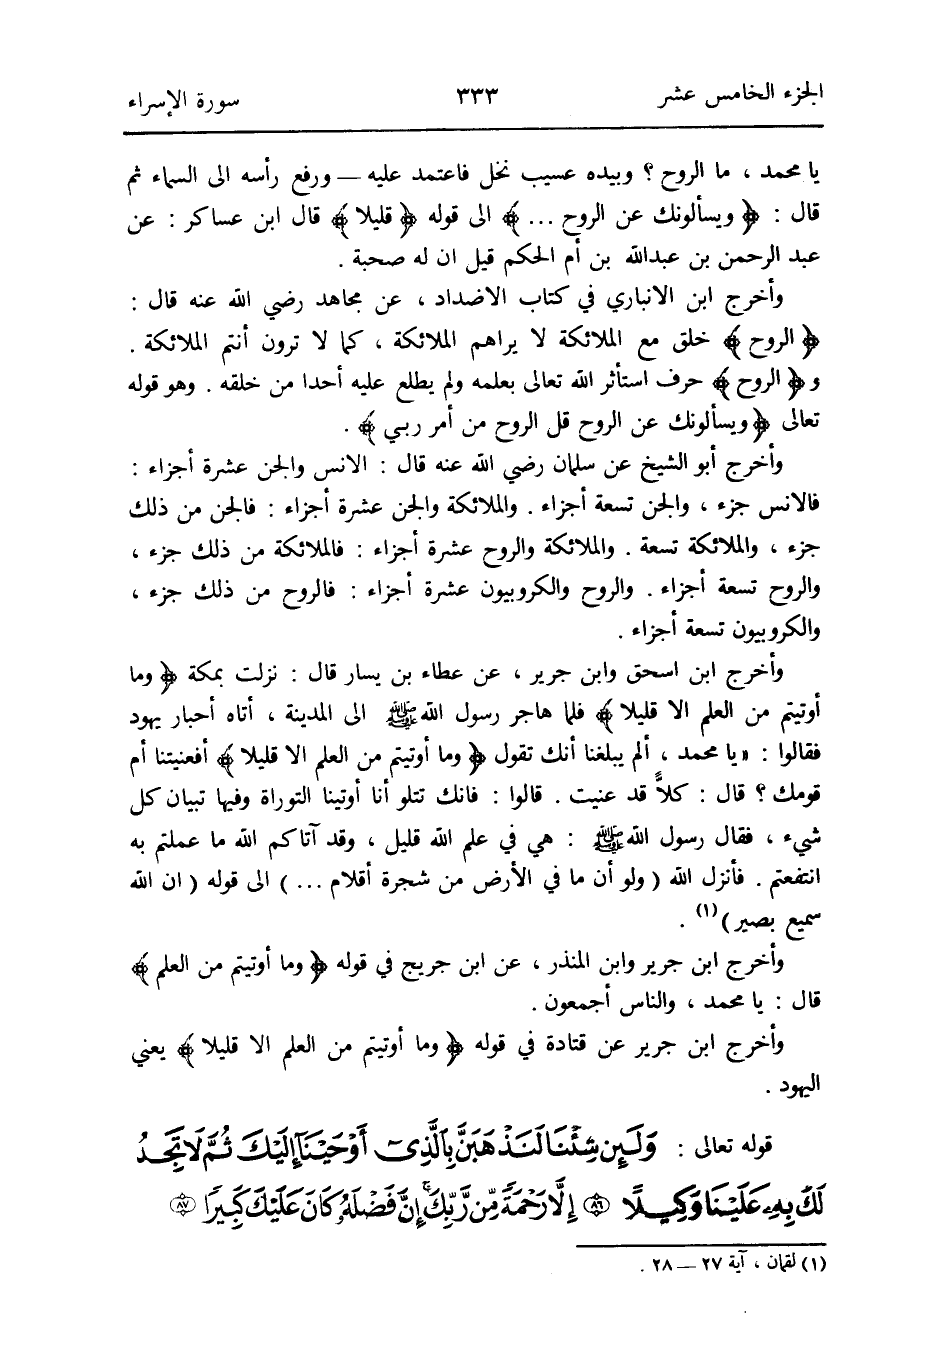 الجزء الخامس عشر ٣٣٣ سورة الإسراء
يا محمد ، ما الروح ؟ وبيده عسيب نخل فاعتمد عليه — ورفع رأسه الى السماء ثم
قال : ﴿ ويسألونك عن الروح ... ﴾ الى قوله ﴿ قليلا ﴾ قال ابن عساكر : عن
عبد الرحمن بن عبدالله بن أم الحكم قيل ان له صحبة .
وأخرج ابن الانباري في كتاب الاضداد ، عن مجاهد رضي الله عنه قال :
﴿ الروح ﴾ خلق مع الملائكة لا يراهم الملائكة ، كما لا ترون أنتم الملائكة .
و ﴿ الروح ﴾ حرف استأثر الله تعالى بعلمه ولم يطلع عليه أحدا من خلقه . وهو قوله
تعالى ﴿ ويسألونك عن الروح قل الروح من أمر ربي ﴾ .
وأخرج أبو الشيخ عن سلمان رضي الله عنه قال : الانس والجن عشرة أجزاء :
فالانس جزء ، والجن تسعة أجزاء . والملائكة والجن عشرة أجزاء : فالجن من ذلك
جزء ، والملائكة تسعة . والملائكة والروح عشرة أجزاء : فالملائكة من ذلك جزء ،
والروح تسعة أجزاء . والروح والكروبيون عشرة أجزاء : فالروح من ذلك جزء ،
والكروبيون تسعة أجزاء .
وأخرج ابن اسحق وابن جرير ، عن عطاء بن يسار قال : نزلت بمكة ﴿ وما
أوتيتم من العلم الا قليلا ﴾ فلما هاجر رسول الله ﷺ الى المدينة ، أتاه أحبار يهود
فقالوا : « يا محمد ، ألم يبلغنا أنك تقول ﴿ وما أوتيتم من العلم الا قليلا ﴾ أفعنيتنا أم
قومك ؟ قال : كلاًّ قد عنيت . قالوا : فانك تتلو أنا أوتينا التوراة وفيها تبيان كل
شيء ، فقال رسول الله ﷺ : هي في علم الله قليل ، وقد آتاكم الله ما عملتم به
انتفعتم . فأنزل الله ( ولو أن ما في الأرض من شجرة أقلام ... ) الى قوله ( ان الله
سميع بصير )(١) .
وأخرج ابن جرير وابن المنذر ، عن ابن جريج في قوله ﴿ وما أوتيتم من العلم ﴾
قال : يا محمد ، والناس أجمعون .
وأخرج ابن جرير عن قتادة في قوله ﴿ وما أوتيتم من العلم الا قليلا ﴾ يعني
اليهود .
قوله تعالى : وَلَئِن شِئْنَا لَنَذْهَبَنَّ بِالَّذِىٓ أَوْحَيْنَآ إِلَيْكَ ثُمَّ لَا تَجِدُ
لَكَ بِهِۦ عَلَيْنَا وَكِيلًا ﴿٨٦﴾ إِلَّا رَحْمَةً مِّن رَّبِّكَ ۚ إِنَّ فَضْلَهُۥ كَانَ عَلَيْكَ كَبِيرًا ﴿٨٧﴾
(١) لقمان ، آية ٢٧ — ٢٨ .